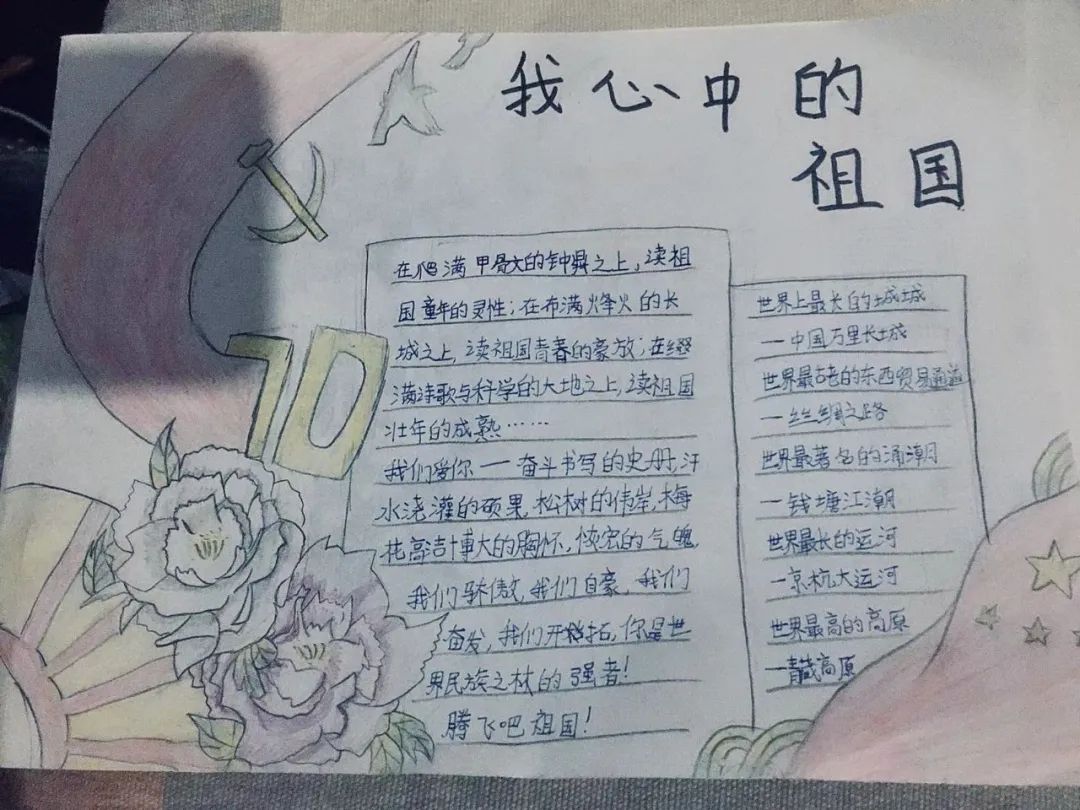 我心中的
祖国
70
在爬满甲骨文的钟鼎之上,读祖
国童年的灵性;在布满烽火的长
城之上,读祖国青春的豪放;在缀
满诗歌与科学的大地之上,读祖国
壮年的成熟……
我们爱你一奋斗书写的史册,汗
水浇灌的硕果,松树的伟岸,梅
花高洁博大的胸怀,恢宏的气魄
我们骄傲,我们自豪,我们
奋发,我们开拓,你是世
界民族之林的强者!
腾飞吧祖国!
世界上最长的城城
一中国万里长城
世界最古老的东西贸易通道
一丝绸之路
世界最著名的涌潮
一钱塘江潮
世界最长的运河
一京杭大运河
世界最高的高原
一青藏高原